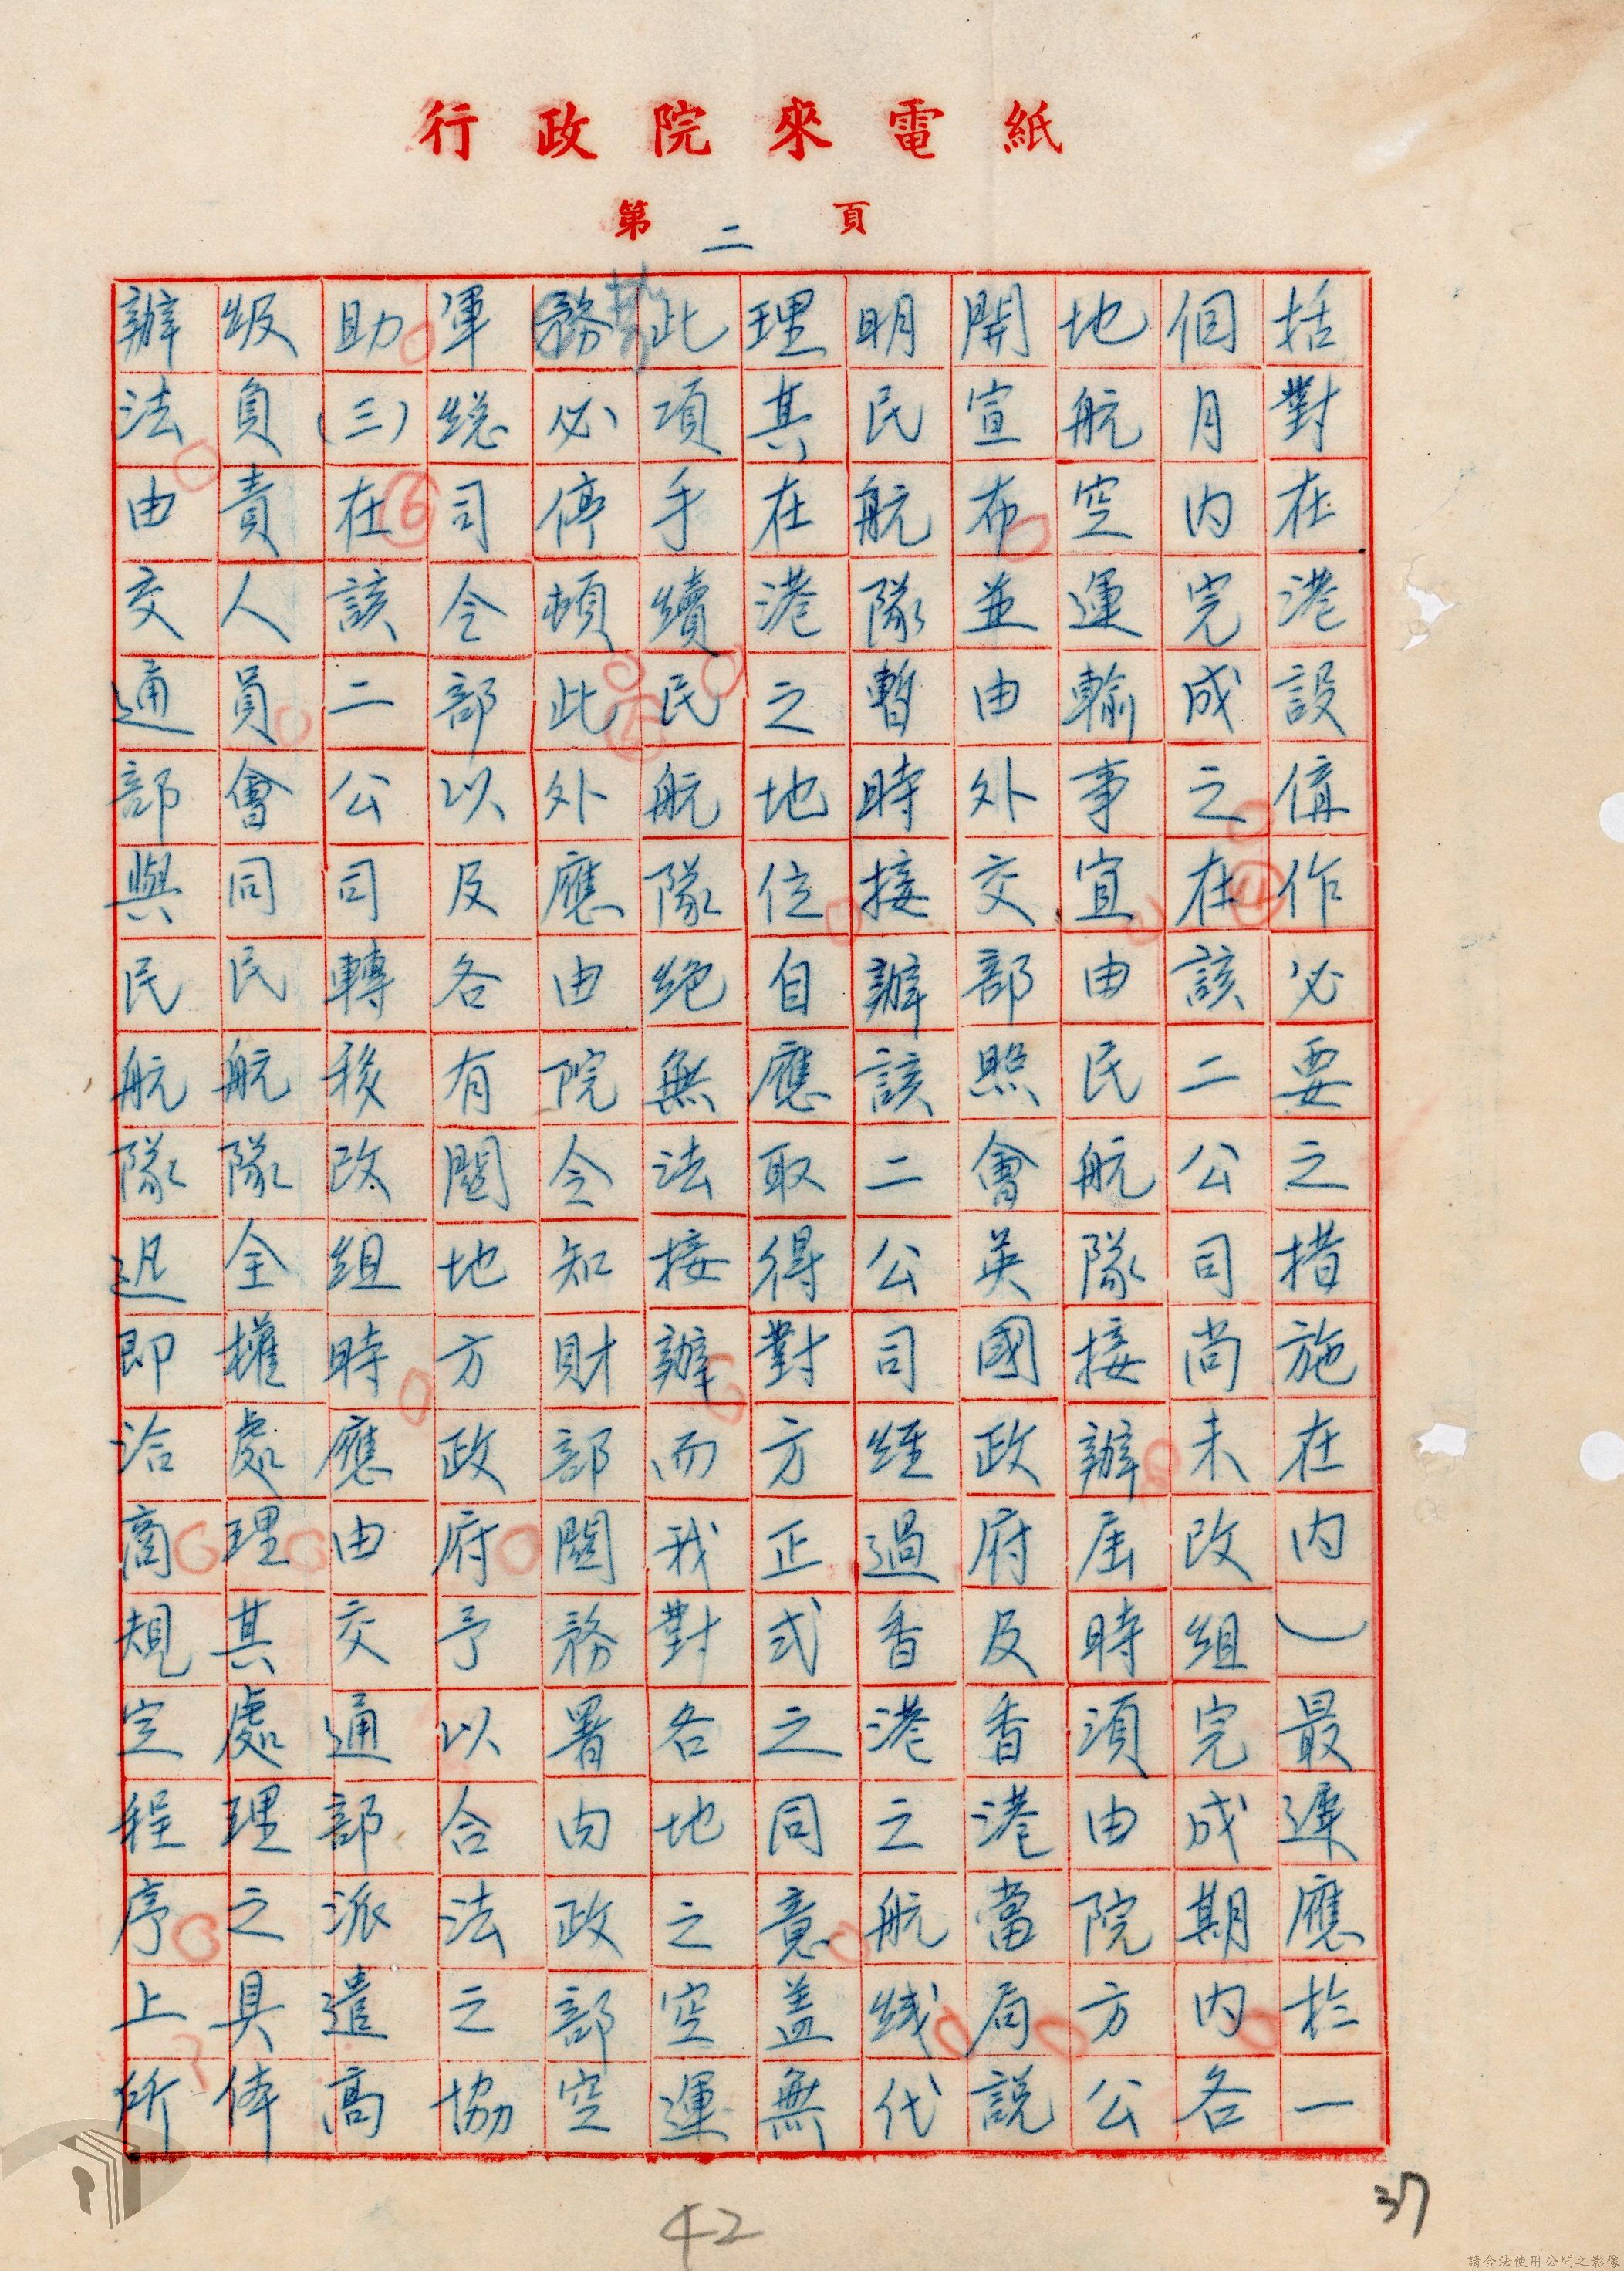 行政院來電紙
第二頁
括對在港設偹作必要之措施在內）最遲應於一
個月內完成之在該二公司尚未改組完成期內各
地航空運輸事宜由民航隊接辦屆時須由院方公
開宣布並由外交部照會英國政府及香港當局說
明民航隊暫時接辦該二公司經過香港之航线代
理其在港之地位自應取得對方正式之同意盖無
此項手續民航隊絕無法接辦而我對各地之空運
務必停頓此外應由院令知財部關務署內政部空
軍總司令部以及各有關地方政府予以合法之協
助(三)在該二公司轉移改組時應由交通部派遣高
級負責人員會同民航隊全權處理其處理之具体
辦法由交通部與民航隊迅即洽商規定程序上所
④
⑥
42
37
請合法使用公開之影像